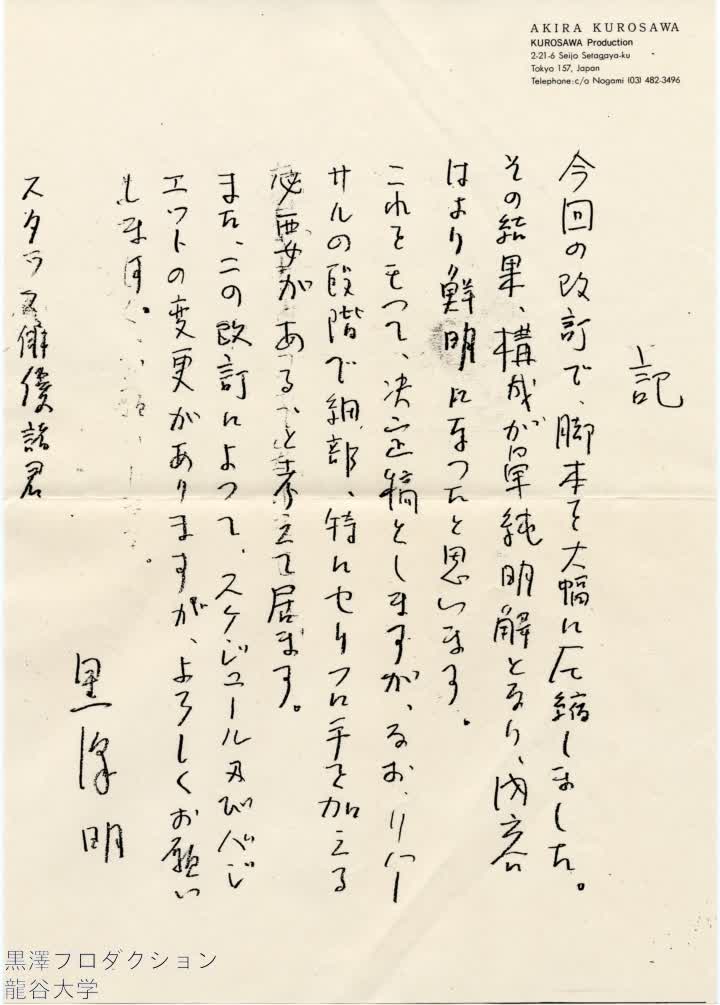 AKIRA KUROSAWA
KUROSAWA Production
2-21-6 Seijo Setagaya-ku
Tokyo 157, Japan
Telephone: c/o Nogami (03) 482-3496
記
今回の改訂で、脚本を大幅に圧縮しました。
その結果、構成が単純明解となり、内容
はより鮮明になつたと思います。
これをもつて、決定稿としますが、なお、リハー
サルの段階で細部、特にセリフに手を加える
必要があると考えて居ます。
また、この改訂によつて、スケジュール及びバジ
ェツトの変更がありますが、よろしくお願い
します。
黒澤明
スタッフ俳優諸君
黒澤プロダクション
龍谷大学